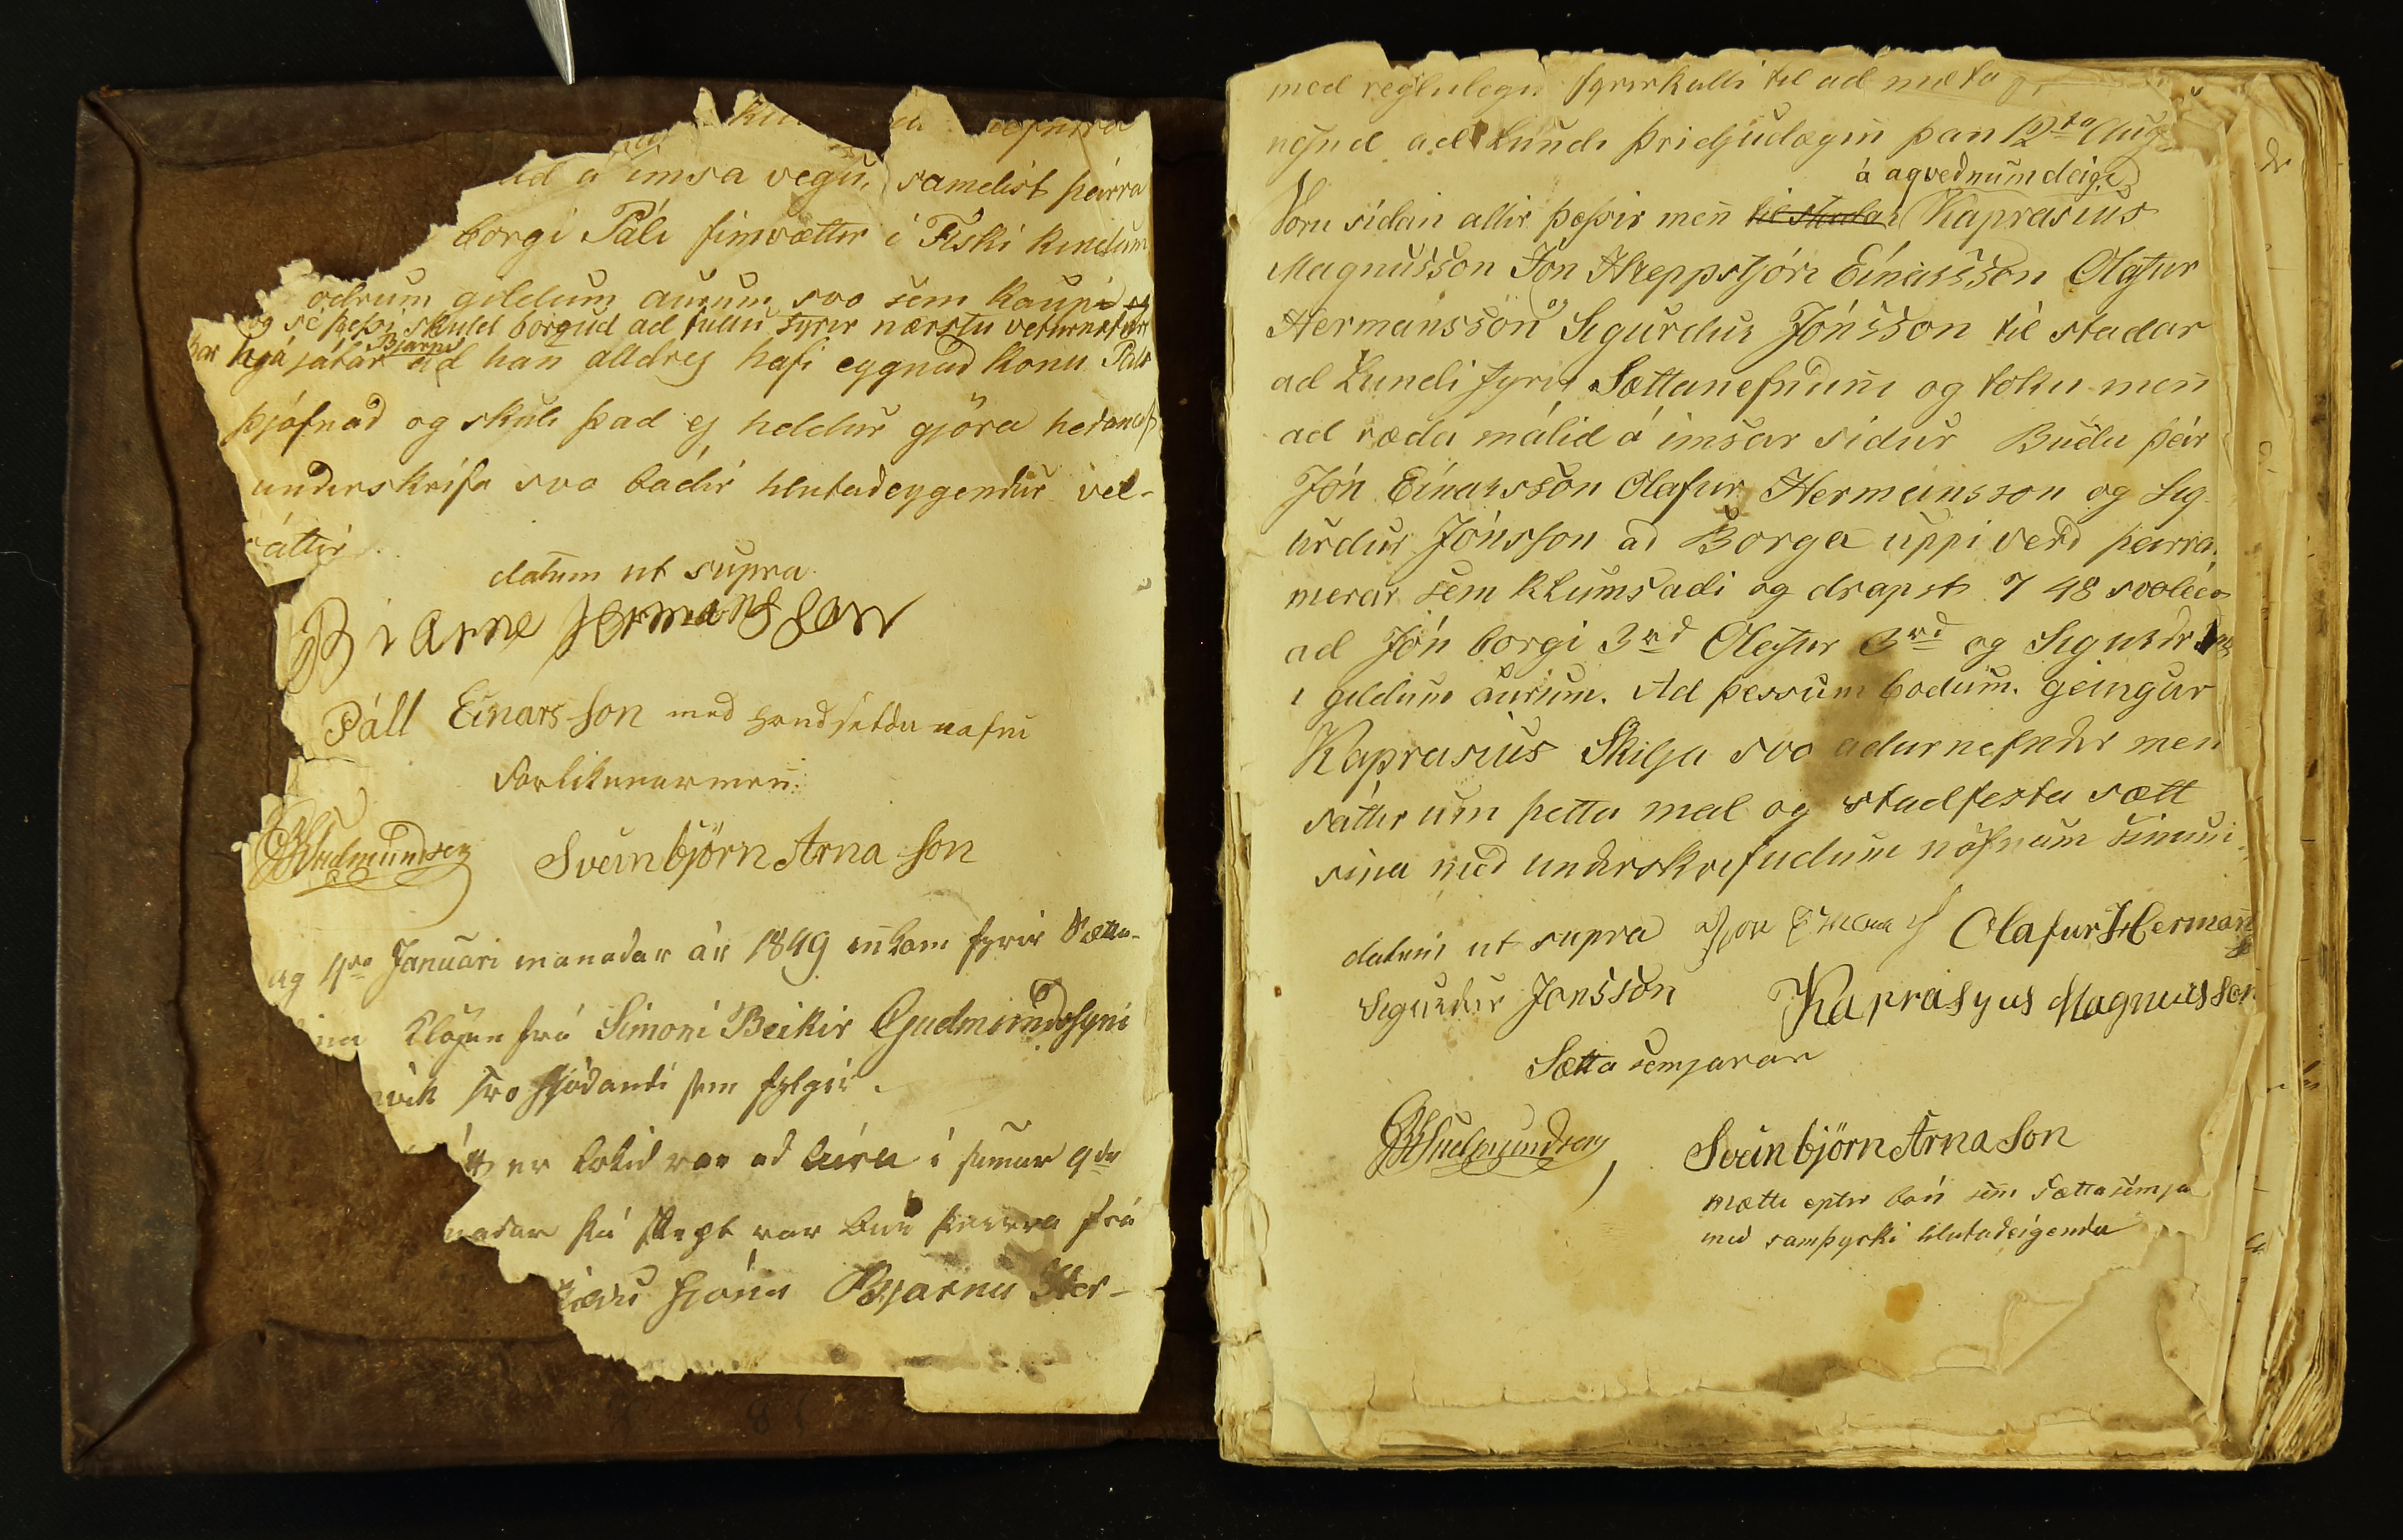 nefnira
á imsa vegu, samdist þeirra
borgi Páli fimvættir i Fiski kindum
ödrum gildum aurum svo sem kaupi
og sé þessi skuld borgud ad fullu fyrir næstu veturnætur
Bjarni
hjá játar ad han aldrej hafi eygnad konu Páls
þjófnad og skuli þad ej heldur gjöra hedanaf
underskrifa svo bádir hlutadeygendur vel-
sáttir.
datum ut supra
Biarne Hermansson
Páll Einars-son med handsöldu nafni
Forlikunarmenn:
GGudmundsen Sveinbjörn Arna son
4da Januari manadar ár 1849 innkom fyrir Sætta-
Klögun frá Simoni Beikir Gudmundssyni
vik svo hljódandi sem fylgir.
er tekid var ad leira i sumar 9da
nadar þá var þeirra frá
Bjarna Her-
med reglulegu fyrirkalli til ad mæta
nefnd ad Lundi þridjudæginn þan 12ta Aug
á aqvednumdeigi
Voru sidan allir þessir menn til stadar Kaprasius
Magnusson Jón Hreppstjóri Einarsson Olafur
Hermansson og Sigurdur Jónsson til stadar
ad Lundi fyrir Sættanefndinni og toku menn
ad ræda málid á imsar sidur Budu þeir
Jón Einarsson Olafur Hermansson og Sig
urdur Jónsson ad Borga uppi verd þeirra
merar sem klumsadi og drapst 7 48 svoleidis
ad Jón borgi 3rd Olafur 3rd og Sigurdr
i gildum aurum. Ad þessum bodum geingur
Kaprasius Skilja svo adurnefndir menn
sáttir um þetta mal og stadfesta sætt
sina med underskrifudum nöfnum sinum.
datum ut supra Jón Einarss Olafur Hermann
Sigurdur Jonsson Kaprasyus Magnusson
Sætta semjarar
GGudmundsen, Sveinbjörn Arna son
mætti eptir bón sem Sættasemja
med samþycki hlutadeigenda